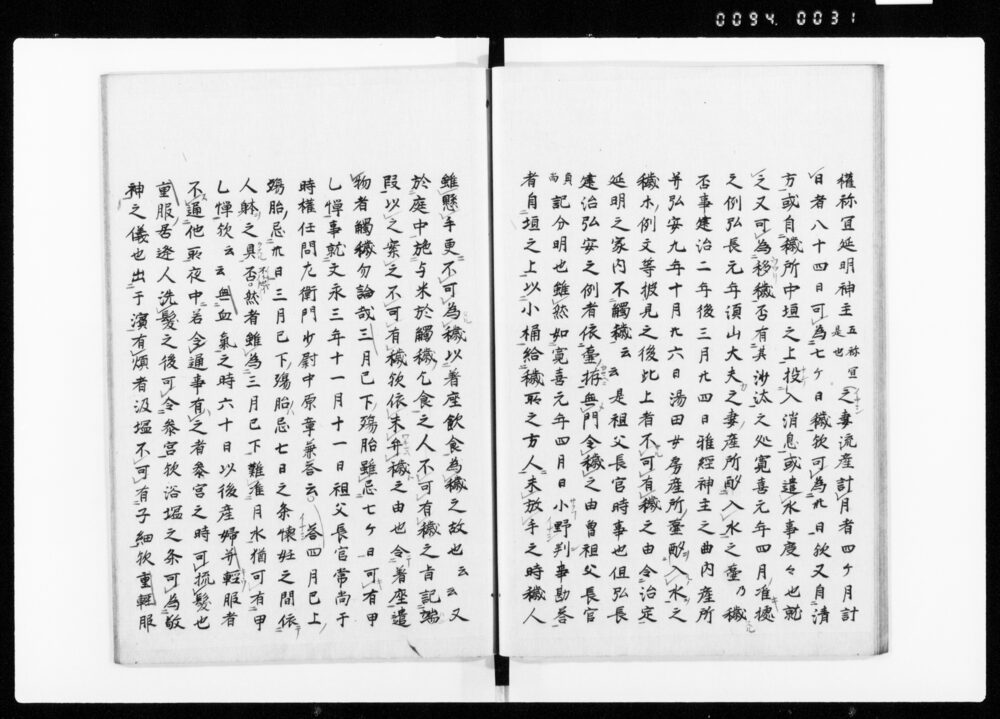 0094.0031
權祢宜延明神主五祢宜是也之妻流産計月者四ケ月計
日者八十四日可為七ケ日穢欤可為卅日欤又自清
方或自穢所中垣之上投入消息或遣水事度々也就
之又可為移穢否有其沙汰之処寛喜元年四月准徳
之例弘長元年須山大夫之妻産所酌入水之乃穢
否事建治二年後三月廿四日雅経神主之曲内産所
并弘安九年十月廿六日湯田女房産所酌入水之
穢水例文等披見之後此上者不可有穢之由令治定
延明之家内不觸穢云云是祖父長官時事也但弘長
建治弘安之例者依無門令穢之由曽祖父長官
員而記分明也雖然如寛喜元年四月日小野判事勘答
者自垣之上以小桶給穢所之方人未放手之時穢人
雖懸手更不可為穢以着座飲食為穢之故也云云又
於庭中施与米於觸穢乞食之人不可有穢之旨記端
段以之案之不可有穢欤依未弁穢之由也令着座遣
物者觸穢勿論哉三月已下殤胎雖忌七ケ日可有甲
乙憚事就文永三年十一月十一日祖父長官常尚于
時權任問左衛門少尉中原章兼答云答四月已上
殤胎忌卅日三月已下殤胎忌七日之条懐妊之間依
人躰之具否然者雖為三月已下難准月水猶可有甲
乙憚欤云云無血氣之時六十日以後産婦并輕服者
不通他所夜中若令通事有之者叅宮之時可梳髮也
重服居逰人洗髮之後可令叅宮欤浴塩之条可為敬
神之儀也出于濱有煩者汲塩不可有子細欤重輕服